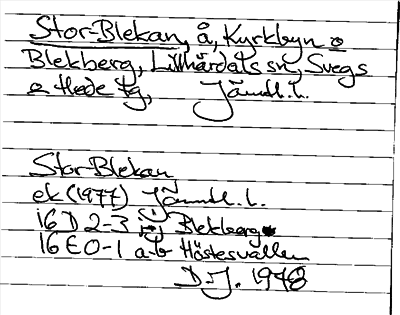 Stor-Blekan, å, Kyrkbyn o
Blekberg, Lillhärdals sn, Svegs
o Hede tg, Jämtl. l.
Stor-Blekan
ek (1977) Jämtl. l.
16D 2-3 j Blekberg
16E 0-1 a-b Höstesvallen
D.J. 1978